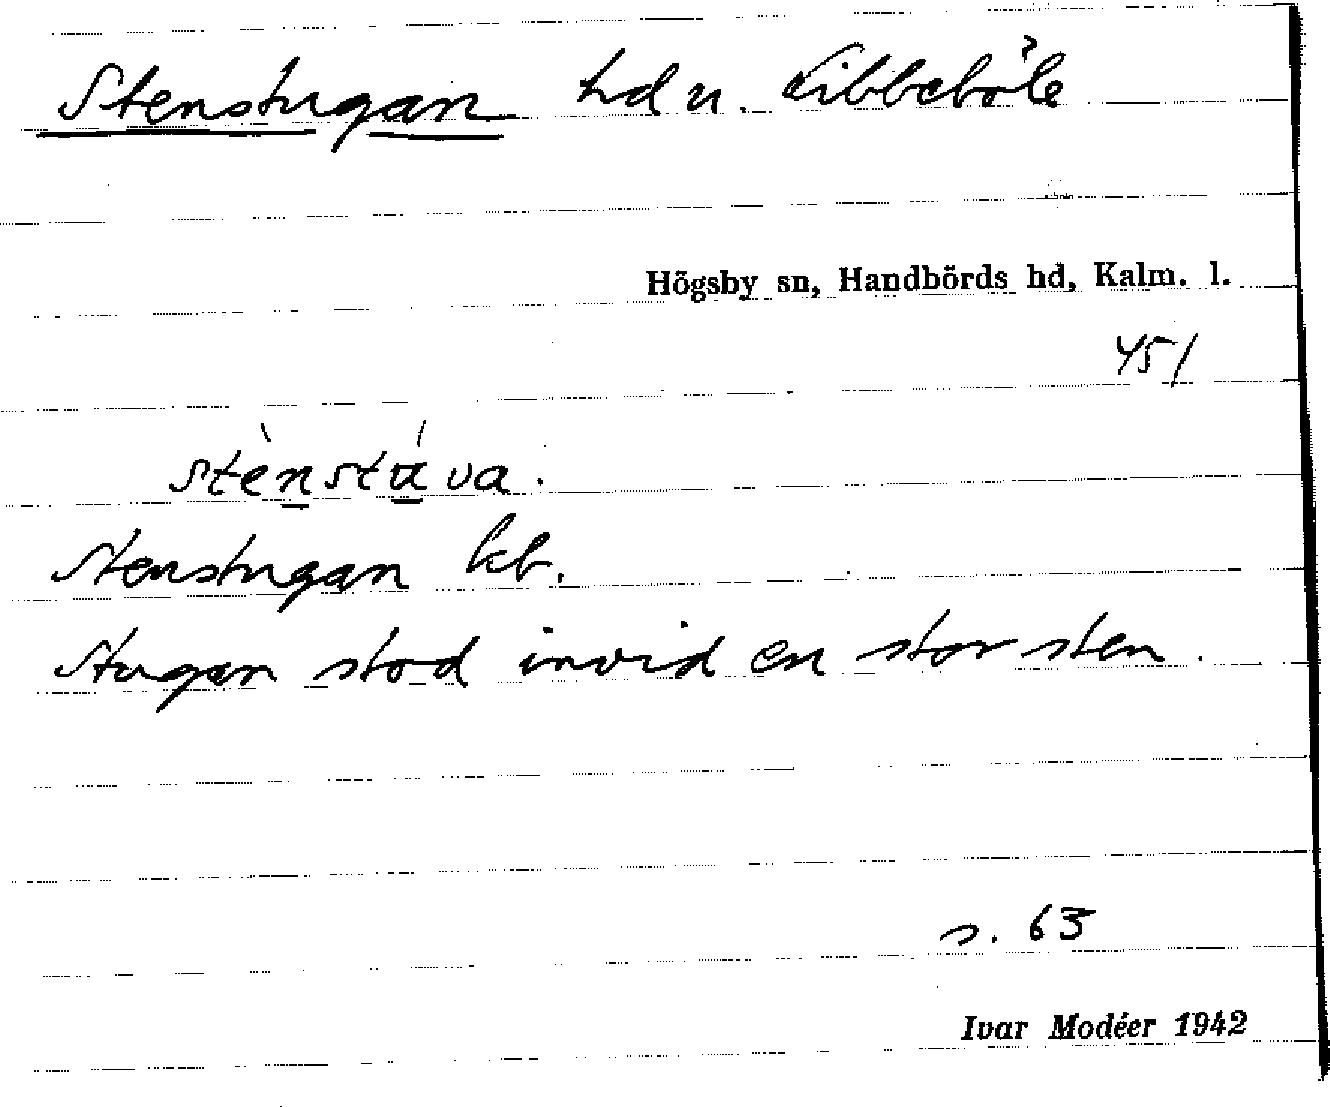 Stenstugan hd u. Libbeböle
Högsby sn, Handbörds hd, Kalm. l.
451
stènstúva.
Stenstugan kb.
Stugan stod invid en stor sten.
s. 63
Ivar Modéer 1942